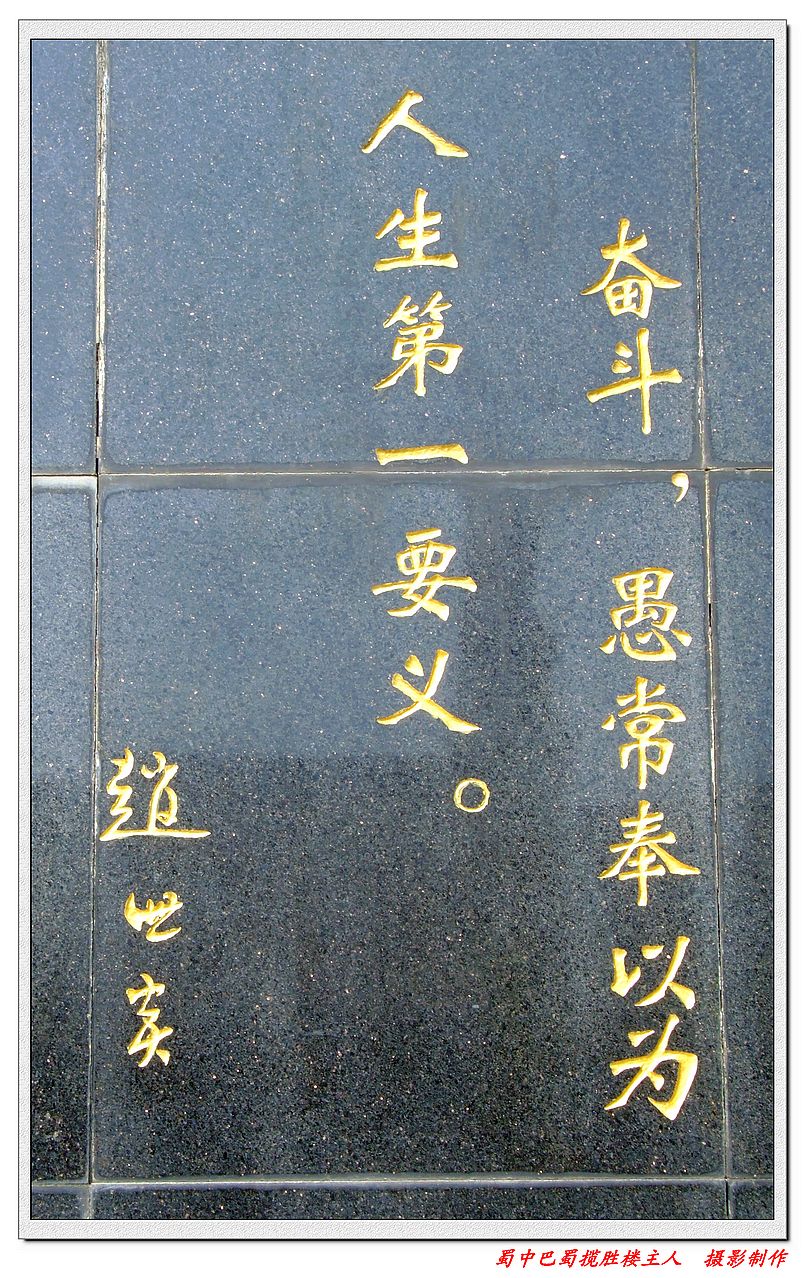 奋斗，愚常奉以为
人生第一要义。
趙世炎
蜀中巴蜀揽胜楼主人　摄影制作